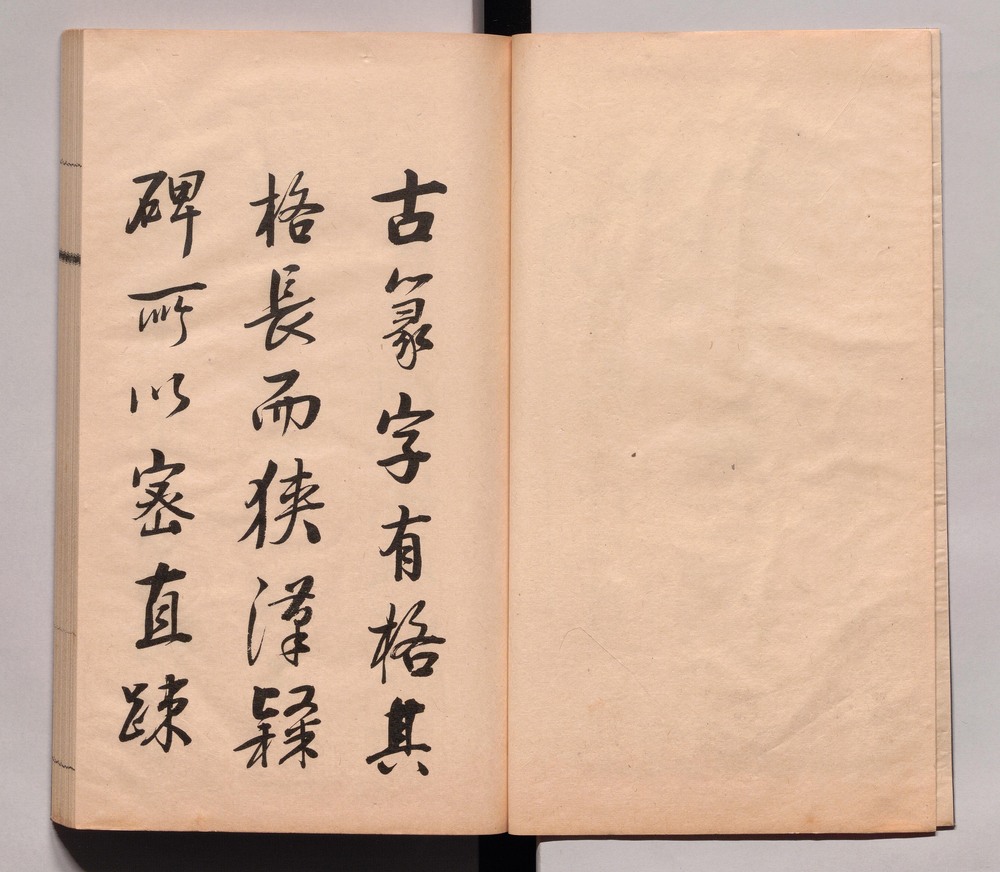 古篆字有格其
格長而狹漢隸
碑所以密直疎